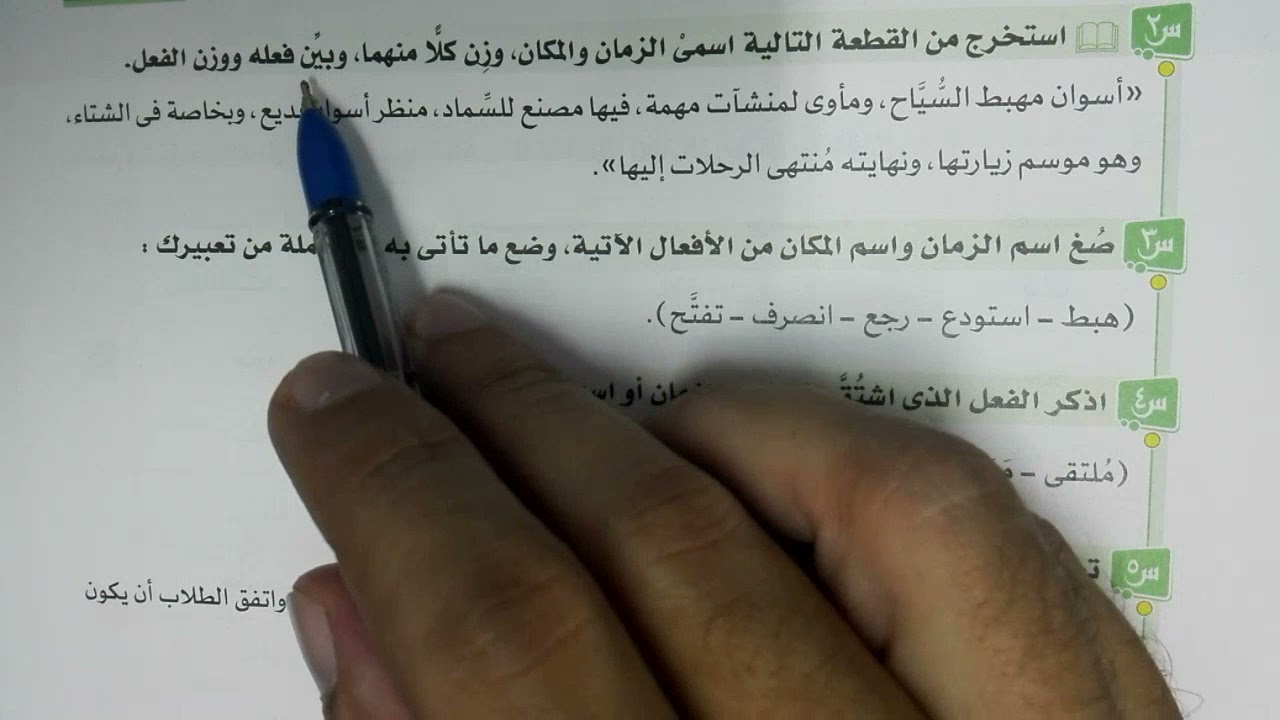 س٢ استخرج من القطعة التالية اسمىْ الزمان والمكان، وزِن كلًّا منهما، وبيِّن فعله ووزن الفعل.
«أسوان مهبط السُّيَّاح، ومأوى لمنشآت مهمة، فيها مصنع للسِّماد، منظر بديع، وبخاصة فى الشتاء،
وهو موسم زيارتها، ونهايته مُنتهى الرحلات إليها».
س٣ صُغ اسم الزمان واسم المكان من الأفعال الآتية، وضع ما تأتى به من تعبيرك :
(هبط – استودع – رجع – انصرف – تفتَّح).
س٤ اذكر الفعل الذى أو
(مُلتقى –
س٥
واتفق الطلاب أن يكون